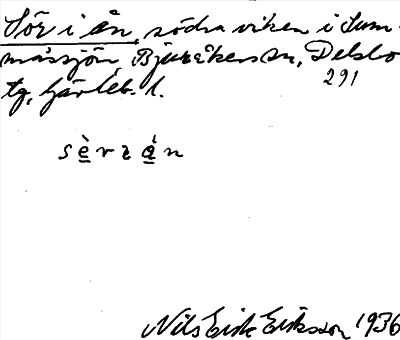 Sör i ån, södra viken i Sum-
måssjön, Bjuråkers sn, Delsbo
291
tg, Gävleb. l.
sèrrán
Nils Erik Eriksson 1936